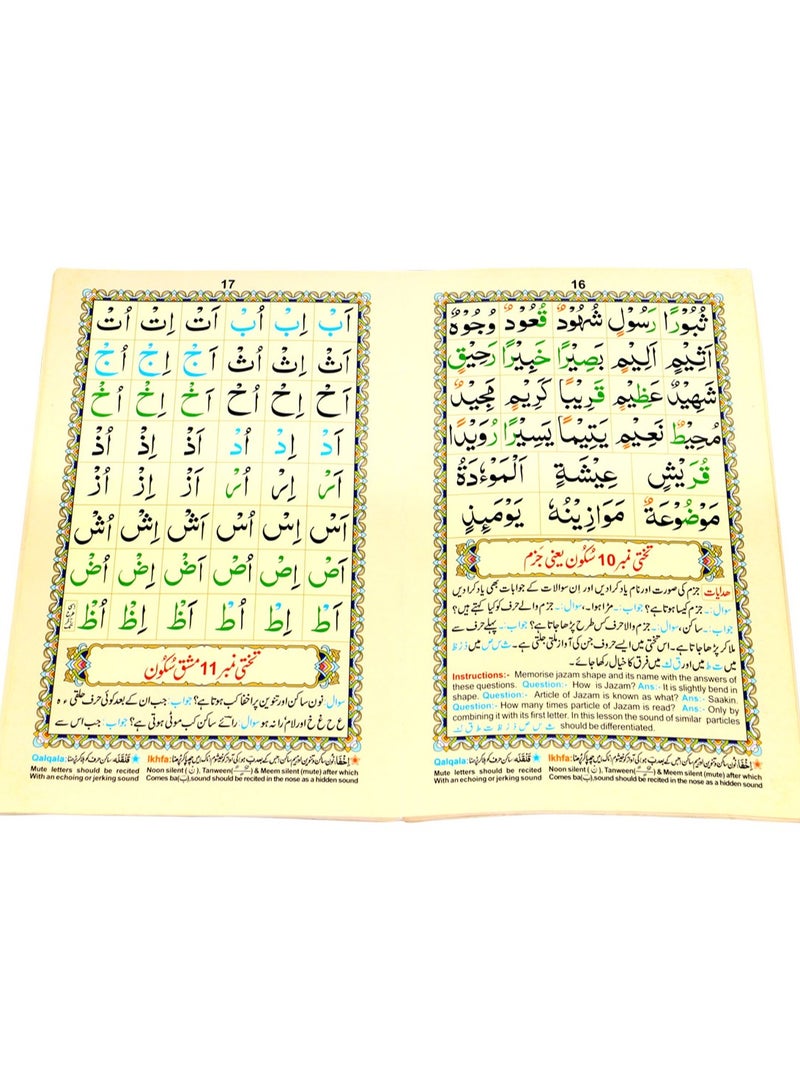 16
ثُبُوْرًا رَسُوْلٍ شُهُوْدٌ قُعُوْدٌ وُجُوْهٌ
اَثِيْمٍ اَلِيْمٍ بَصِيْرًا خَبِيْرًا رَحِيْقٍ
شَهِيْدٌ عَظِيْمٍ قَرِيْبًا كَرِيْمٍ مَجِيْدٌ
مُحِيْطٌ نَعِيْمٍ يَتِيْمًا يَسِيْرًا رُوَيْدًا
قُرَيْشٍ عِيْشَةٍ اَلْمَوْءٗدَةُ
مَوْضُوْعَةٌ مَوَازِيْنُهٗ يَوْمَئِذٍ
تختی نمبر 10 سُکُون یعنی جَزم
ھدایات جزم کی صورت اور نام یاد کرادیں اور ان سوالات کے جوابات بھی یاد کرادیں
سوال:۔ جزم کیسا ہوتا ہے؟ جواب:۔ مڑا ہوا۔ سوال:۔ جزم والے حرف کو کیا کہتے ہیں؟
جواب:۔ ساکن، سوال:۔ جزم والا حرف کس طرح پڑھا جاتا ہے؟ جواب:۔ پہلے حرف سے
ملا کر پڑھا جاتا ہے۔ اس تختی میں ایسے حروف جن کی آواز ملتی جلتی ہے۔ ث س ص میں ذ ز ظ
میں ت ط میں اور ق ک میں فرق کا خیال رکھا جائے۔
Instructions:- Memorise jazam shape and its name with the answers of
these questions. Question:- How is Jazam? Ans:- It is slightly bend in
shape. Question:- Article of Jazam is known as what? Ans:- Saakin.
Question:- How many times particle of Jazam is read? Ans:- Only by
combining it with its first letter. In this lesson the sound of similar particles
ث س ص ذ ز ظ ت ط ق ک should be differentiated.
Qalqala: قَلْقَلَه ساکن حرف کو ہلا کر پڑھنا
Mute letters should be recited
With an echoing or jerking sound
Ikhfa: اِخْفَا
Noon silent (ن), Tanween & Meem silent (mute) after which
Comes ba(ب),sound should be recited in the nose as a hidden sound
17
اَبْ اِبْ اُبْ اَتْ اِتْ اُتْ
اَثْ اِثْ اُثْ اَجْ اِجْ اُجْ
اَحْ اِحْ اُحْ اَخْ اِخْ اُخْ
اَدْ اِدْ اُدْ اَذْ اِذْ اُذْ
اَرْ اِرْ اُرْ اَزْ اِزْ اُزْ
اَسْ اِسْ اُسْ اَشْ اِشْ اُشْ
اَصْ اِصْ اُصْ اَضْ اِضْ اُضْ
اَطْ اِطْ اُطْ اَظْ اِظْ اُظْ
تختی نمبر 11 مشق سُکُون
سوال: نون ساکن اور تنوین پر اخفا کب ہوتا ہے؟ جواب: جب ان کے بعد کوئی حرف حلقی ء ہ
ع ح غ خ اور لام را نہ ہو سوال: رائے ساکن کب موٹی ہوتی ہے؟ جواب: جب اس سے
Qalqala: قَلْقَلَه ساکن حرف کو ہلا کر پڑھنا
Mute letters should be recited
With an echoing or jerking sound
Ikhfa: اِخْفَا
Noon silent (ن), Tanween & Meem silent (mute) after which
Comes ba(ب),sound should be recited in the nose as a hidden sound